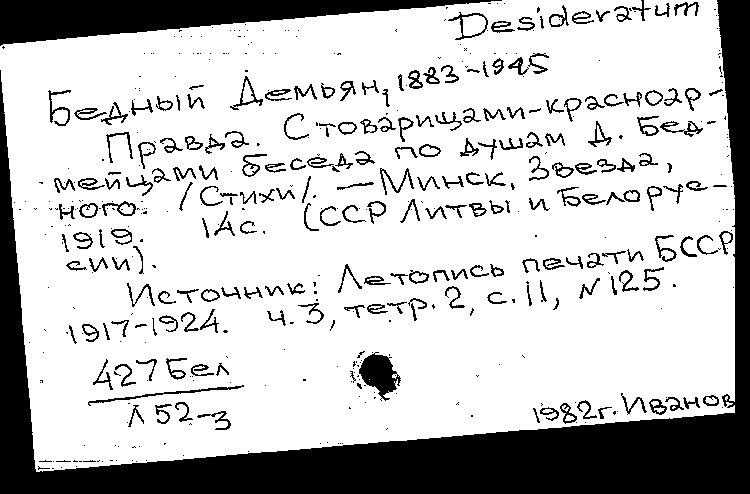 Desideratum
Бедный Демьян, 1883-1945
Правда. С товарищами-красноар-
мейцами беседа по душам Д. Бед-
ного. /Стихи/. — Минск, Звезда,
1919. 14с. (ССР Литвы и Белорус-
сии).
Источник: Летопись печати БССР
1917-1924. ч. 3, тетр. 2, с. 11, N 125.
427 Бел
Л 52-3
1982г. Иванов